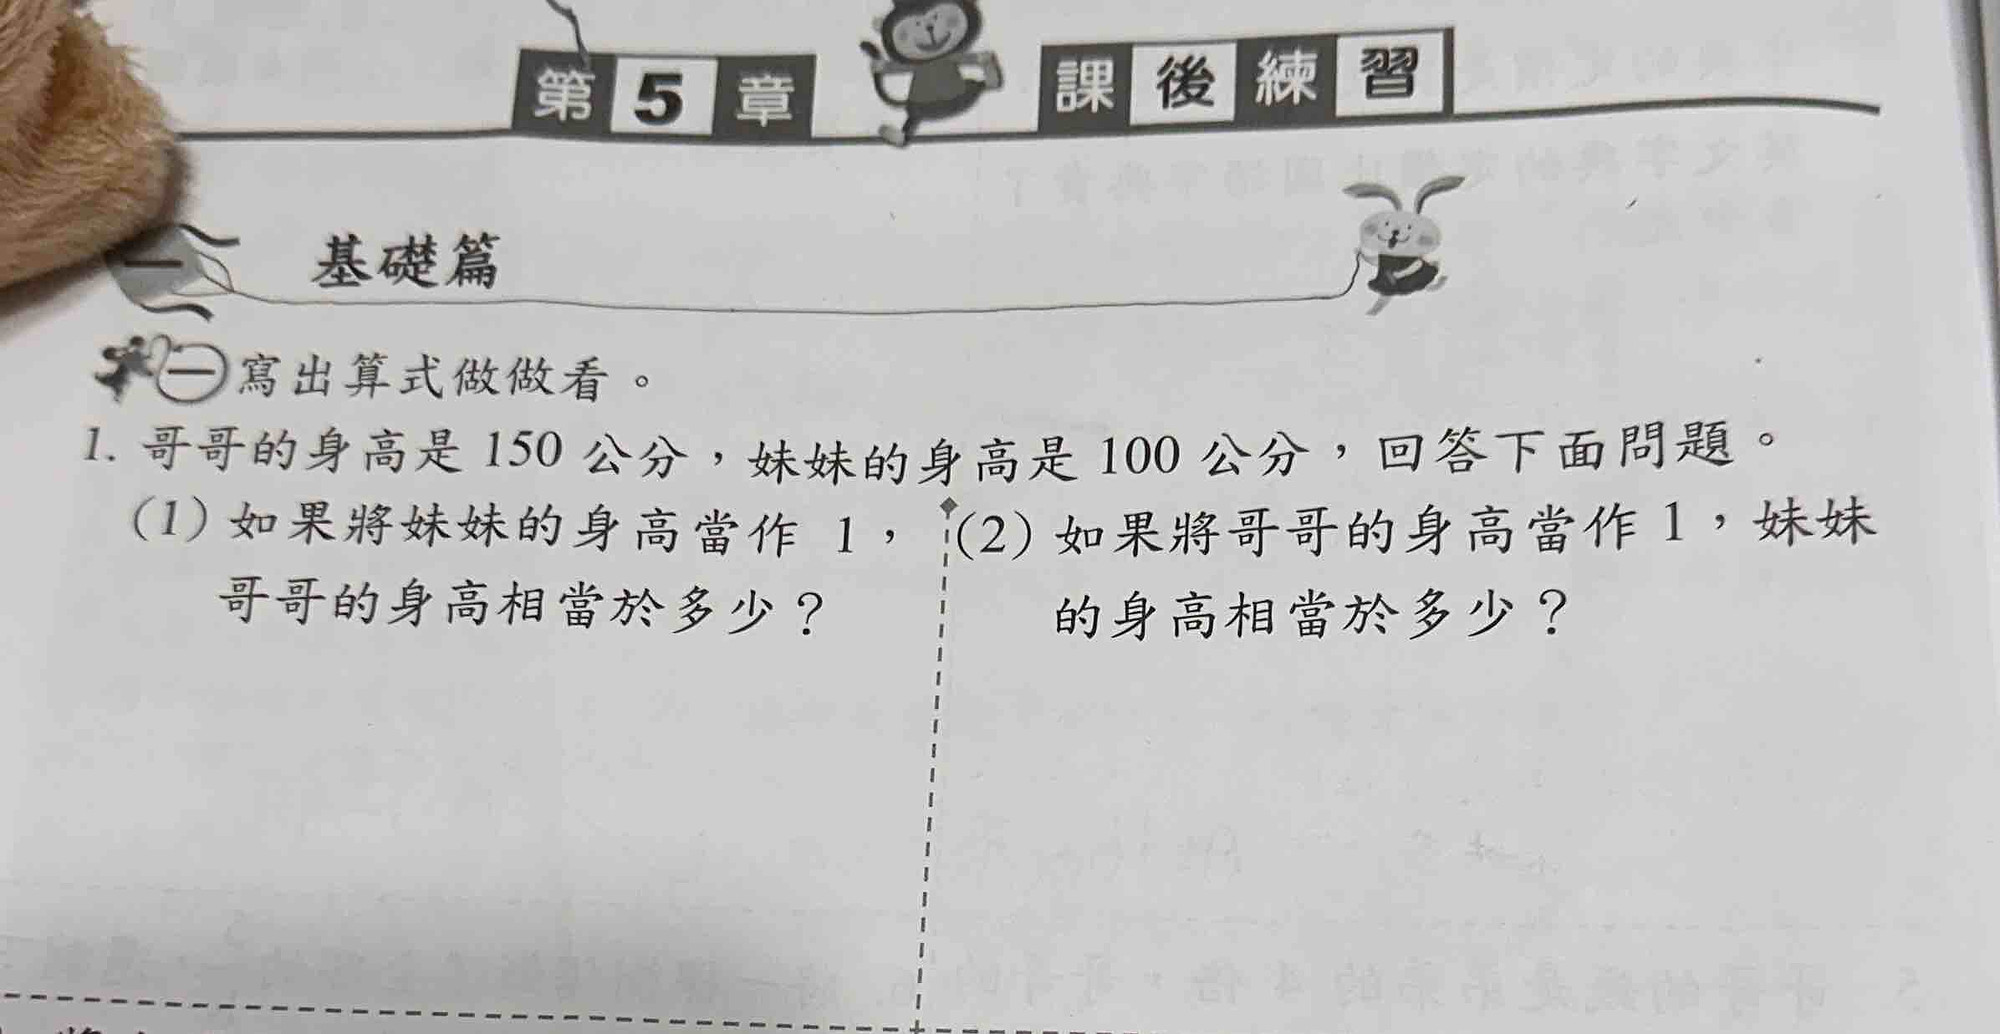 第5章 課後練習
一 基礎篇
㊀寫出算式做做看。
1. 哥哥的身高是 150 公分，妹妹的身高是 100 公分，回答下面問題。
(1) 如果將妹妹的身高當作 1，
哥哥的身高相當於多少？
(2) 如果將哥哥的身高當作 1，妹妹
的身高相當於多少？